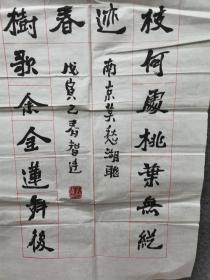 枝何處桃葉無縱
迹
南京莫愁湖聯
春
戊寅之春智達
樹歌余金蓮舞後